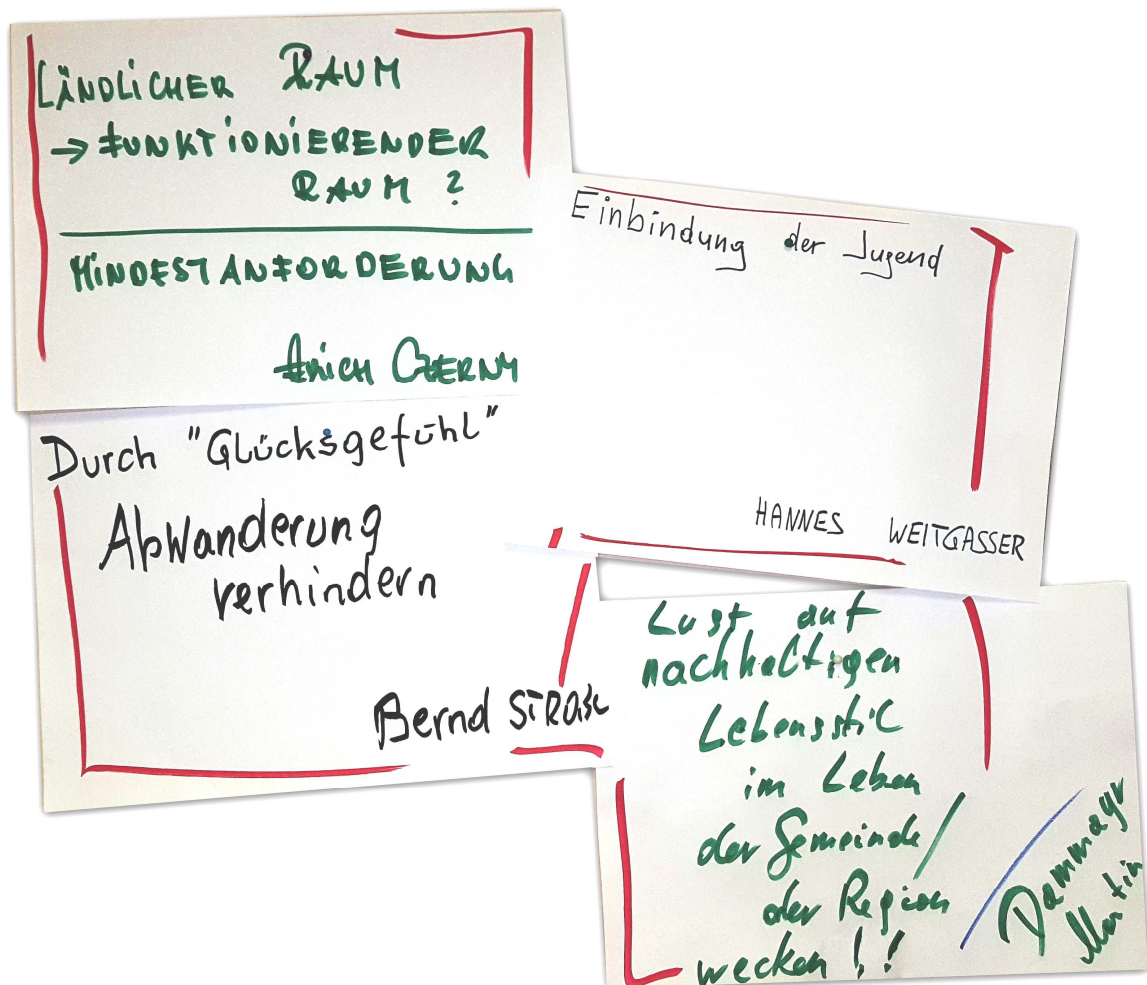 LÄNDLICHER RAUM
→ FUNKTIONIERENDER
RAUM ?
MINDESTANFORDERUNG
CZERNY
Einbindung der Jugend
HANNES WEITGASSER
Durch "Glücksgefühl"
Abwanderung
verhindern
Bernd
Lust auf
nachhaltigen
Lebensstil
im Leben
der Gemeinde/
der Region
wecken !!
Dammayr
Martin